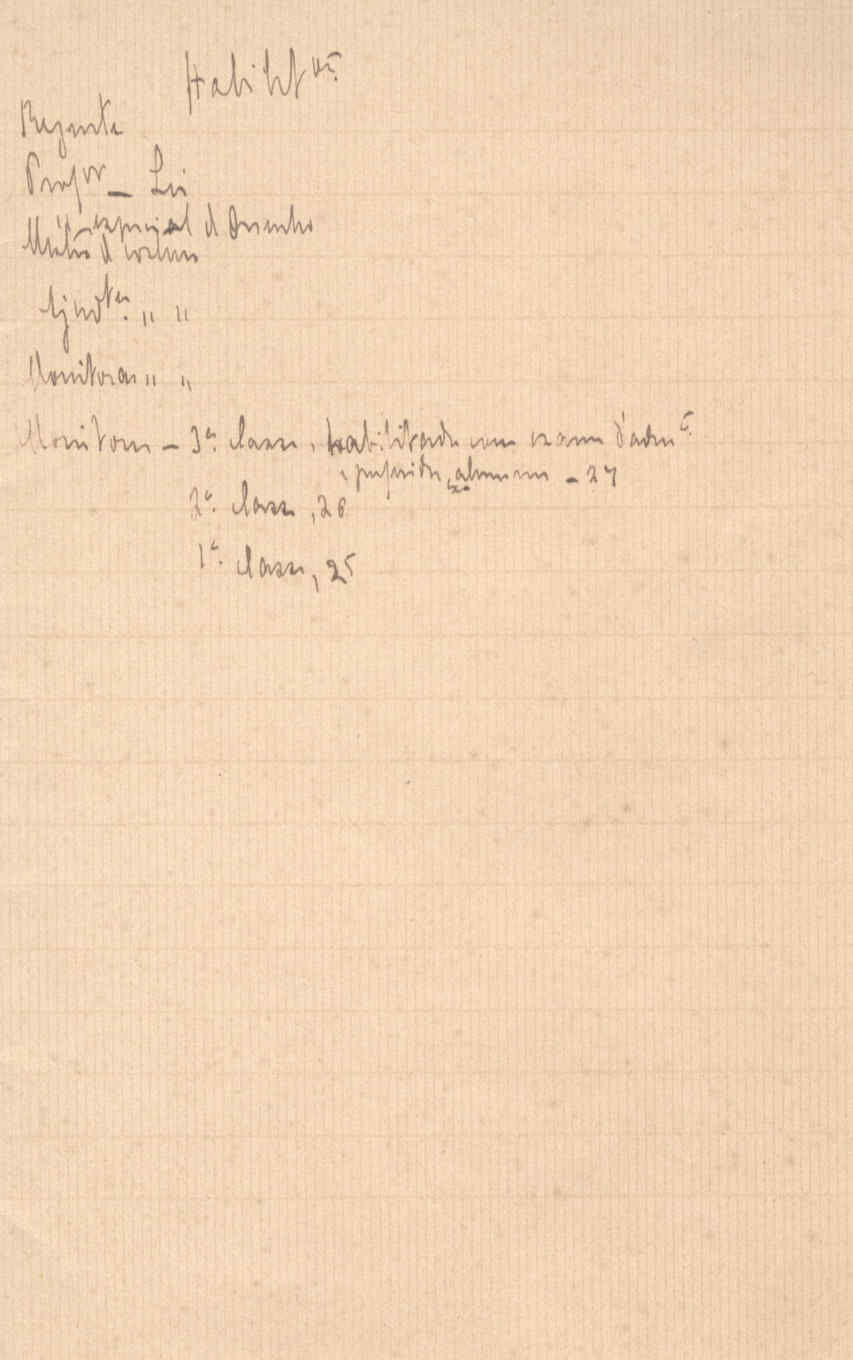 Habilit.ões
Regente
Profor – Lei
" – especial de Desenho
Mestra de costura
Ajud.tes " "
Monitoras " "
Monitores – 3ª classe, habilitados com exame d'adm.
e preferidos, alumnos – 27
2ª classe, 26
1ª classe, 25